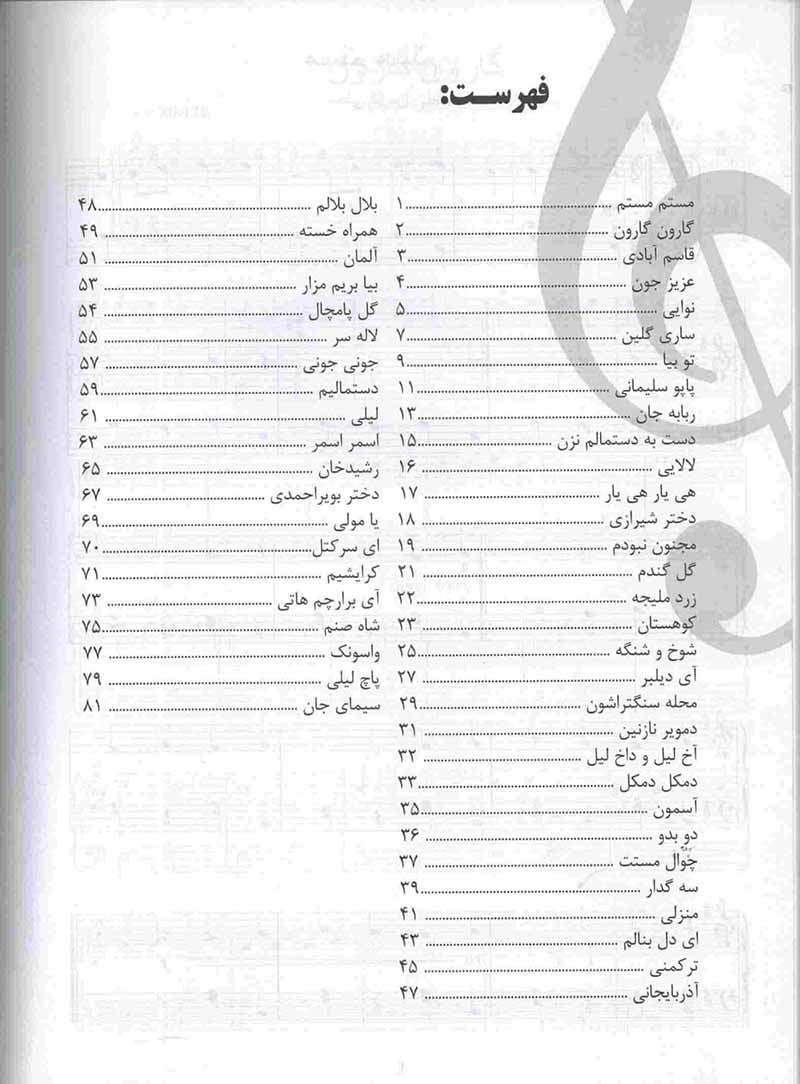 فهرست:
مستم مستم ........ ۱
گارون گارون ........ ۲
قاسم آبادی ........ ۳
عزیز جون ........ ۴
نوایی ........ ۵
ساری گلین ........ ۷
تو بیا ........ ۹
پاپو سلیمانی ........ ۱۱
ربابه جان ........ ۱۳
دست به دستمالم نزن ........ ۱۵
لالایی ........ ۱۶
هی یار هی یار ........ ۱۷
دختر شیرازی ........ ۱۸
مجنون نبودم ........ ۱۹
گل گندم ........ ۲۱
زرد ملیجه ........ ۲۲
کوهستان ........ ۲۳
شوخ و شنگه ........ ۲۵
آی دیلبر ........ ۲۷
محله سنگتراشون ........ ۲۹
دمویر نازنین ........ ۳۱
آخ لیل و داخ لیل ........ ۳۲
دمکل دمکل ........ ۳۳
آسمون ........ ۳۵
دو بدو ........ ۳۶
چوال مستت ........ ۳۷
سه گدار ........ ۳۹
منزلی ........ ۴۱
ای دل بنالم ........ ۴۳
ترکمنی ........ ۴۵
آذربایجانی ........ ۴۷
بلال بلالم ........ ۴۸
همراه خسته ........ ۴۹
آلمان ........ ۵۱
بیا بریم مزار ........ ۵۳
گل پامچال ........ ۵۴
لاله سر ........ ۵۵
جونی جونی ........ ۵۷
دستمالیم ........ ۵۹
لیلی ........ ۶۱
اسمر اسمر ........ ۶۳
رشیدخان ........ ۶۵
دختر بویراحمدی ........ ۶۷
یا مولی ........ ۶۹
ای سرکتل ........ ۷۰
کرایشیم ........ ۷۱
آی برارچم هاتی ........ ۷۳
شاه صنم ........ ۷۵
واسونک ........ ۷۷
پاچ لیلی ........ ۷۹
سیمای جان ........ ۸۱